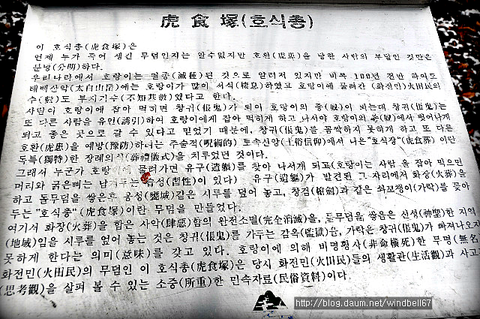 虎食塚(호식총)
이 호식총(虎食塚)은
언제 누가 죽어 생긴 무덤인지는 알수없지만 호환(虎患)을 당한 사람의 무덤인 것만은
분명(分明)하다.
우리나라에서 호랑이는 멸종(滅種)된 것으로 알려져 있지만 비록 100년 전만 하여도
태백산락(太白山脈)에는 호랑이가 많이 서식(棲息)하였고 호랑이에 물려간 화전민(火田民)의
수(數)도 부지기수(不知其數)였다고 한다.
사람이 호랑이에 잡아 먹히면 창귀(倀鬼)가 되어 호랑이의 종(奴)이 되는데 창귀(倀鬼)는
또 다른 사람을 유인(誘引)하여 호랑이에게 잡아 먹히게 하고서야 호랑이의 종(奴)에서 벗어나게
되고 좋은 곳으로 갈 수 있다고 믿었기 때문에, 창귀(倀鬼)를 꼼짝하지 못하게 하고 또 다른
호환(虎患)을 예방(豫防)하려는 주술적(呪術的) 토속신앙(土俗信仰)에서 나온"호식총"(虎食塚) 이란
독특(獨特)한 장례의식(葬禮儀式)을 치루었던 것이다.
그래서 누군가 호랑이 물려가면 유구(遺軀)를 찾아 나서게 되고(호랑이는 사람을 잡아 먹으면
머리와 굵은뼈는 남기는 습성(習性)이 있다) 유구(遺軀)가 발견된 그 자리에서 화장(火葬)을
하고 돌무덤을 쌓은후 옹성(甕城)같은 시루를 덮어 놓고, 창검(槍劍)과 같은 쇠꼬챙이(가락)를 꽂아
두는"호식총"(虎食塚)이란 무덤을 만들었다.
여기서 화장(火葬)을 함은 사악(肆惡)함의 완전소멸(完全消滅)을, 돌무덤을 쌓음은 신성(神聖)한 지역
(地域)임을 시루를 엎어 놓는 것은 창귀(倀鬼)를 가두는 감옥(監獄)을, 가락은 창귀(倀鬼)가 빠져나오지
못하게 한다는 의미(意味)를 갖고 있다. 호랑이에 의해 비명횡사(非命橫死)한 무명(無名)
화전민(火田民)의 무덤인 이 호식총(虎食塚)은 당시 화전민(火田民)들의 생활관(生活觀)과 사고관
(思考觀)을 살펴 볼 수 있는 소중(所重)한 민속자료(民俗資料)이다.
http://blog.daum.net/windbell67